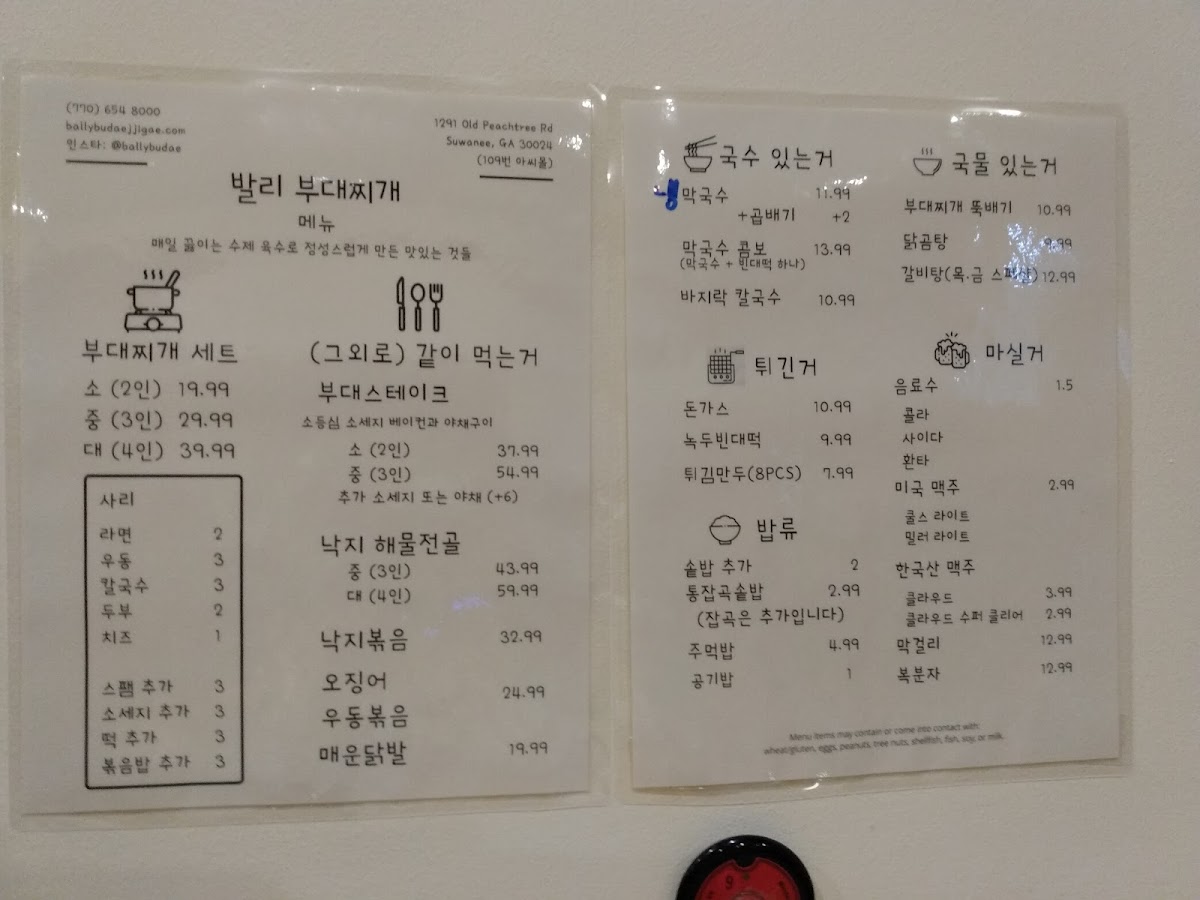 (770) 654 8000
ballybudaejjigae.com
인스타: @ballybudae
1291 Old Peachtree Rd
Suwanee, GA 30024
(109번 아씨몰)
발리 부대찌개
메뉴
매일 끓이는 수제 육수로 정성스럽게 만든 맛있는 것들
부대찌개 세트
소 (2인) 19.99
중 (3인) 29.99
대 (4인) 39.99
사리
라면 2
우동 3
칼국수 3
두부 2
치즈 1
스팸 추가 3
소세지 추가 3
떡 추가 3
볶음밥 추가 3
(그외로) 같이 먹는거
부대스테이크
소등심 소세지 베이컨과 야채구이
소 (2인) 37.99
중 (3인) 54.99
추가 소세지 또는 야채 (+6)
낙지 해물전골
중 (3인) 43.99
대 (4인) 59.99
낙지볶음 32.99
오징어 24.99
우동볶음
매운닭발 19.99
국수 있는거
냉 막국수 11.99
+곱배기 +2
막국수 콤보 13.99
(막국수 + 빈대떡 하나)
바지락 칼국수 10.99
튀긴거
돈가스 10.99
녹두빈대떡 9.99
튀김만두(8PCS) 7.99
밥류
솥밥 추가 2
통잡곡솥밥 2.99
(잡곡은 추가입니다)
주먹밥 4.99
공기밥 1
국물 있는거
부대찌개 뚝배기 10.99
닭곰탕 9.99
갈비탕(목.금 스페셜) 12.99
마실거
음료수 1.5
콜라
사이다
환타
미국 맥주 2.99
쿨스 라이트
밀러 라이트
한국산 맥주
클라우드 3.99
클라우드 수퍼 클리어 2.99
막걸리 12.99
복분자 12.99
Menu items may contain or come into contact with:
wheat/gluten, eggs, peanuts, tree nuts, shellfish, fish, soy, or milk.